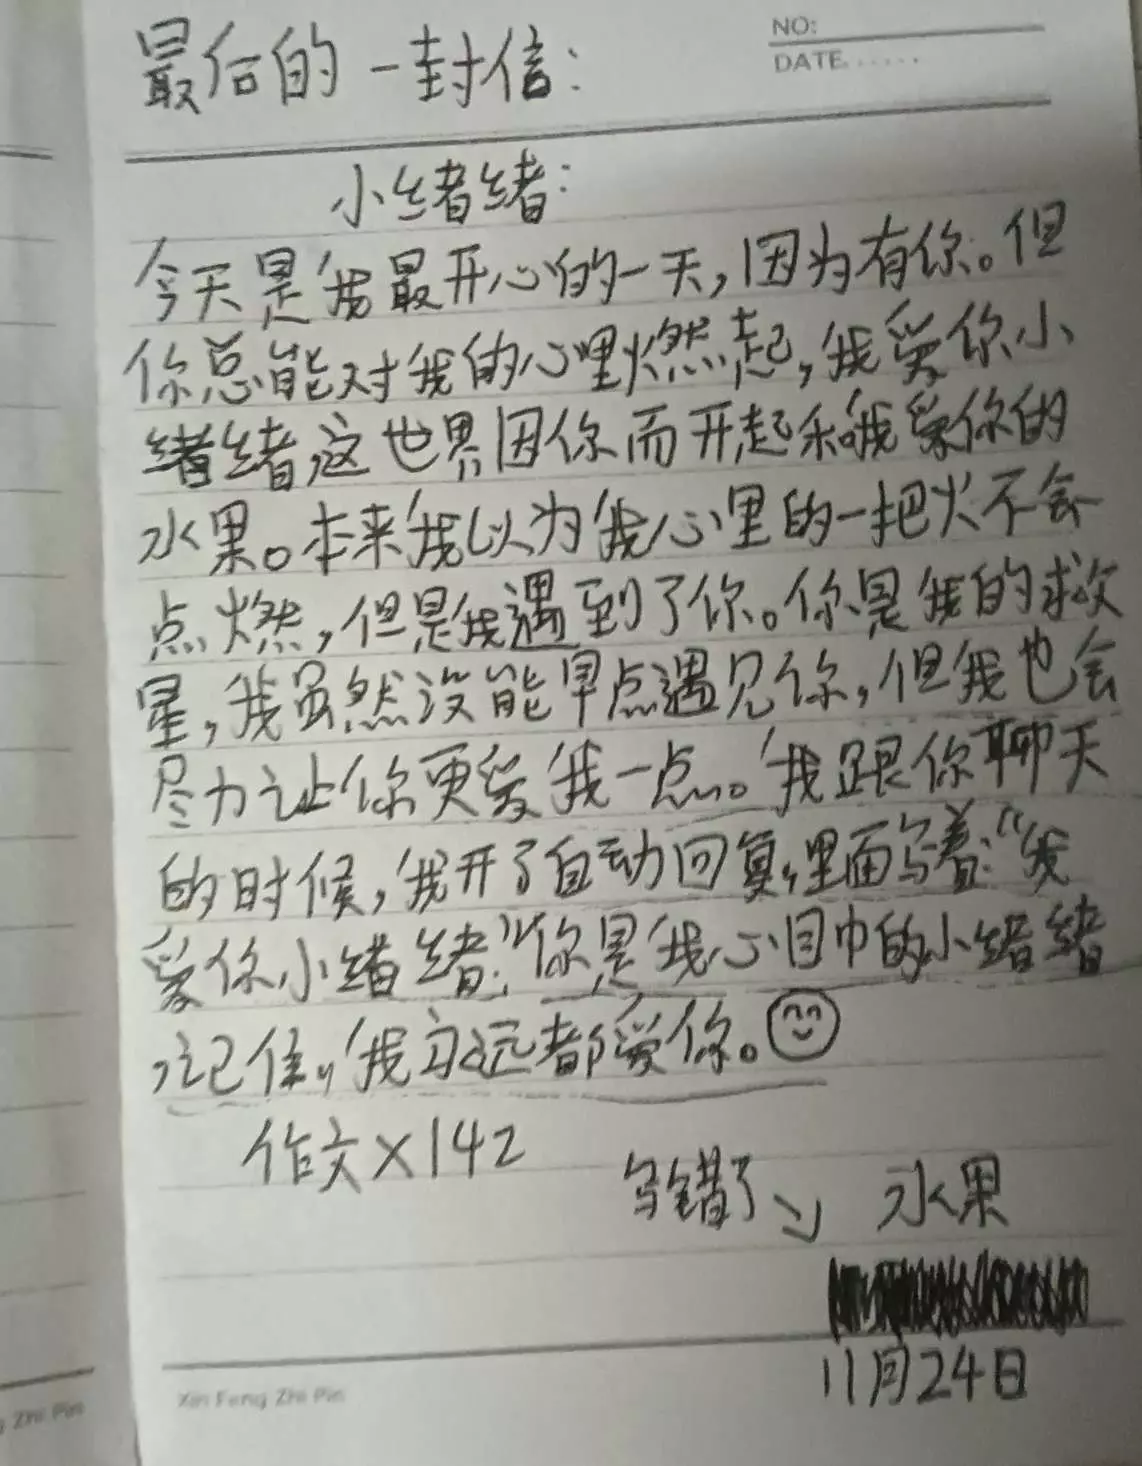 NO:
DATE......
最后的一封信:
小绪绪:
今天是我最开心的一天,因为有你。但
你总能对我的心里燃起,我爱你小
绪绪这世界因你而开起来我爱你的
水果。本来我以为我心里的一把火不会
点燃,但是我遇到了你。你是我的救
星,我虽然没能早点遇见你,但我也会
尽力让你更爱我一点。我跟你聊天
的时候,我开了自动回复,里面写着:“我
爱你小绪绪”你是我心目中的小绪绪
记住,我永远都爱你。
作文×142
写错了
水果
11月24日
Xin Feng Zhi Pin
Zhi Pin